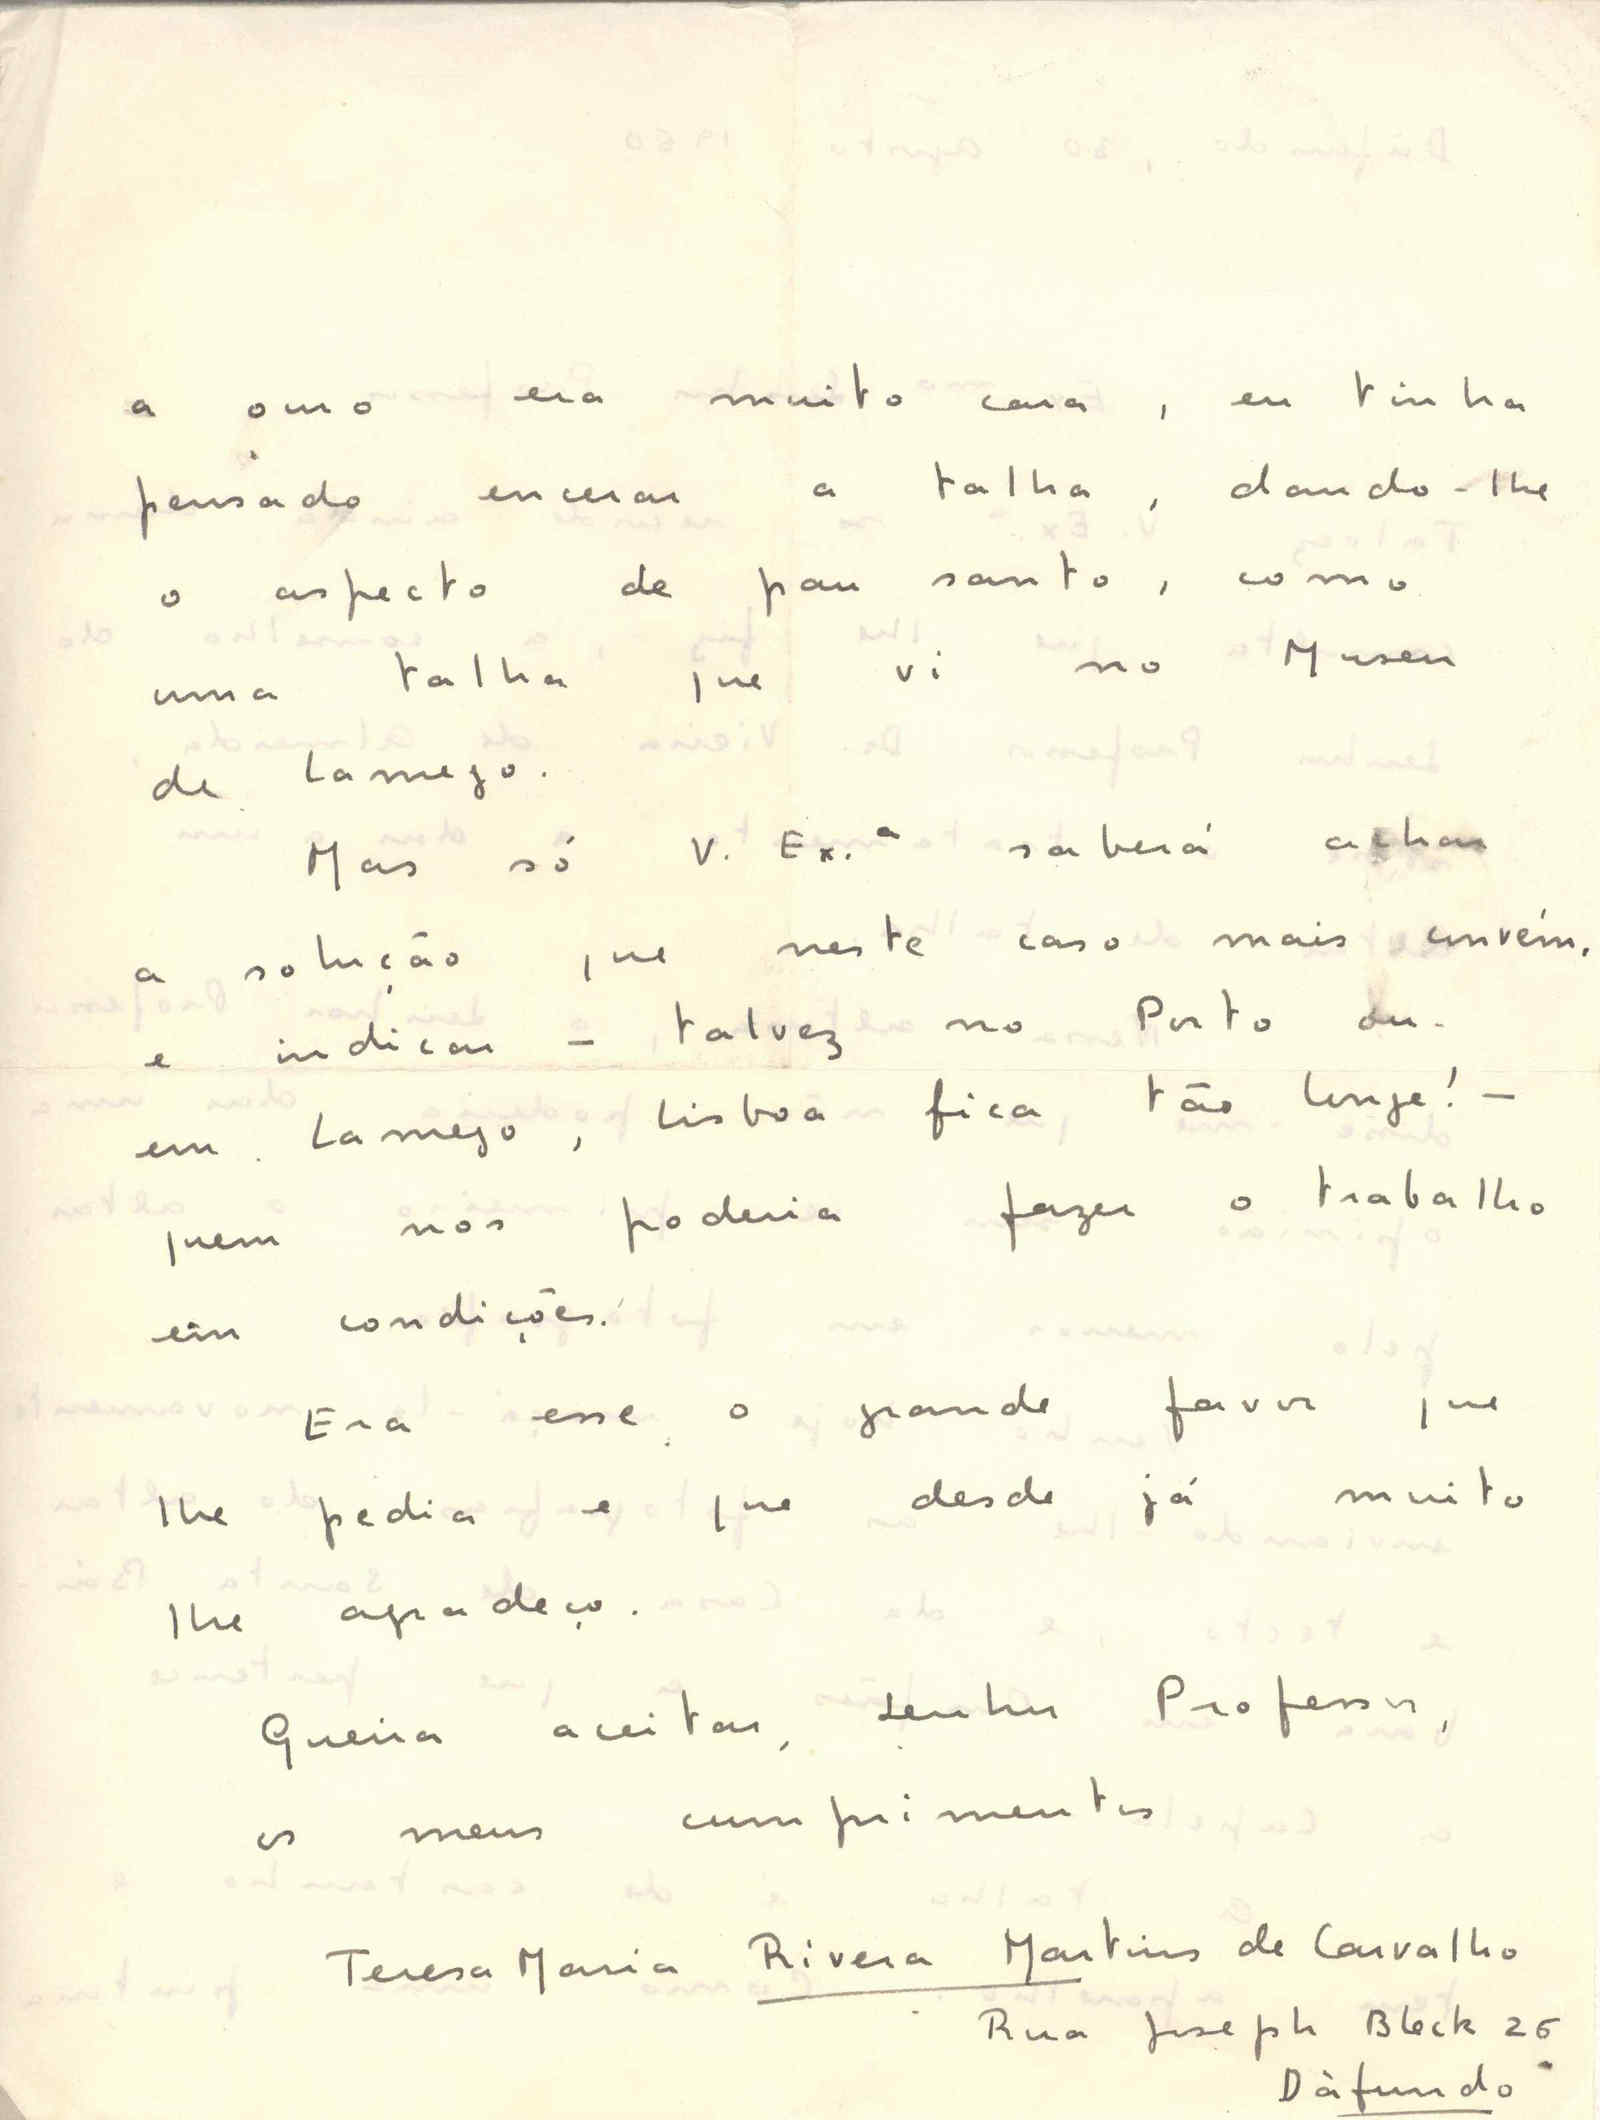 a ouro era muito cara, eu tinha
pensado encerar a talha, dando-lhe
o aspecto de pau santo, como
uma talha que vi no Museu
de Lamego.
Mas só V. Ex.ª saberá achar
a solução que neste caso mais convém,
e indicar - talvez no Porto ou
em Lamego, Lisboa fica tão longe! -
quem nos poderia fazer o trabalho
em condições.
Era esse o grande favor que
lhe pedia e que desde já muito
lhe agradeço.
Queira aceitar, Senhor Professor,
os meus cumprimentos
Teresa Maria Rivera Martins de Carvalho
Rua Joseph Bleck 26
Dàfundo